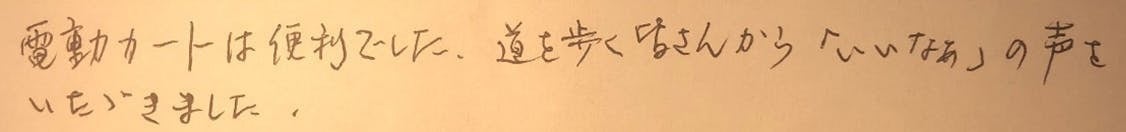 電動カートは便利でした、道を歩く皆さんから「いいなぁ」の声を
いたゞきました．